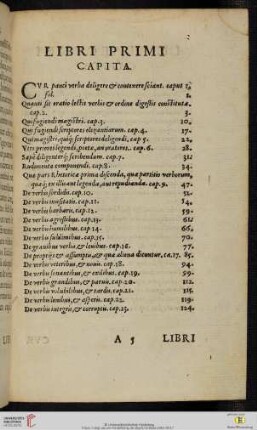 LIBRI PRIMI
CAPITA.
CVR pauci verba deligere & convenere sciant. caput 1,
fol. 2.
Quanti sit oratio lectis verbis & ordine digestis constituta.
cap. 2. 3.
Qui fugiendi magistri. cap. 3. 10.
Qui fugiendi scriptores elegantiarum. cap. 4. 17.
Qui magistri, quíq; scriptores deligendi. cap. 5. 22.
Vtri priores legendi, poëtæ, an oratores. cap. 6. 28.
Sæpè diligentérq; scribendum. cap. 7. 31.
Rudimenta componendi. cap. 8. 34.
Quæ pars Rhetoricæ prima discenda, quæ partitio verborum,
cap. 9. 47.
De verbis sordidis. cap. 10. 52.
De verbis inusitatis. cap. 11. 54.
De verbis barbaris. cap. 12. 59.
De verbis agrestibus. cap. 13. 61.
De verbis humilibus. cap. 14. 66.
De verbis sublimibus. cap. 15. 70.
De gravibus verbis & levibus. cap. 16. 77.
De propriis & assumptis, & quæ aliena dicantur, ca. 17. 85.
De verbis veteribus, & novis. cap. 18. 94.
De verbis sonantibus, & exilibus. cap. 19. 99.
De verbis grandibus, & parvis. cap. 20. 112.
De verbis volubilibus, & tardis. cap. 21. 115.
De verbis levibus, & asperis. cap. 22. 119.
De verbis integris, & corruptis. cap. 23. 124.
A 5 LIBRI